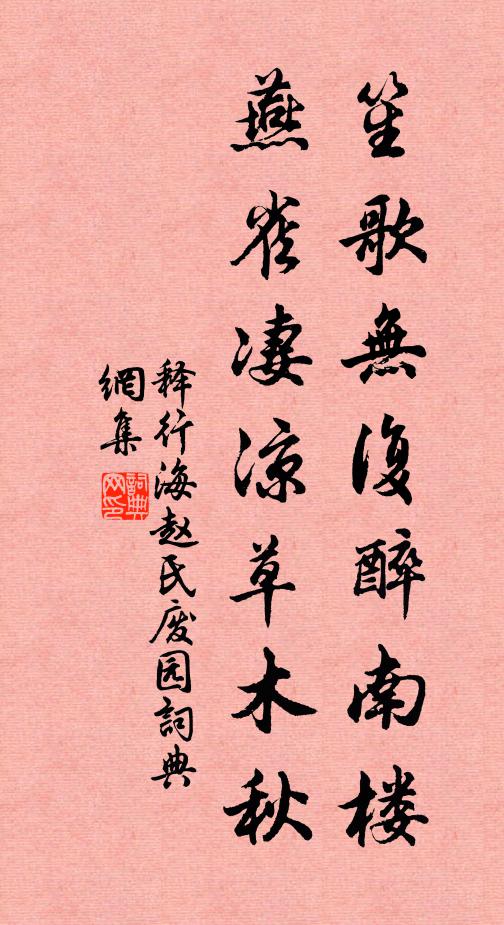 笙歌無復醉南楼
燕雀凄凉草木秋
释行海赵氏废园詞典
網集
詞典网印